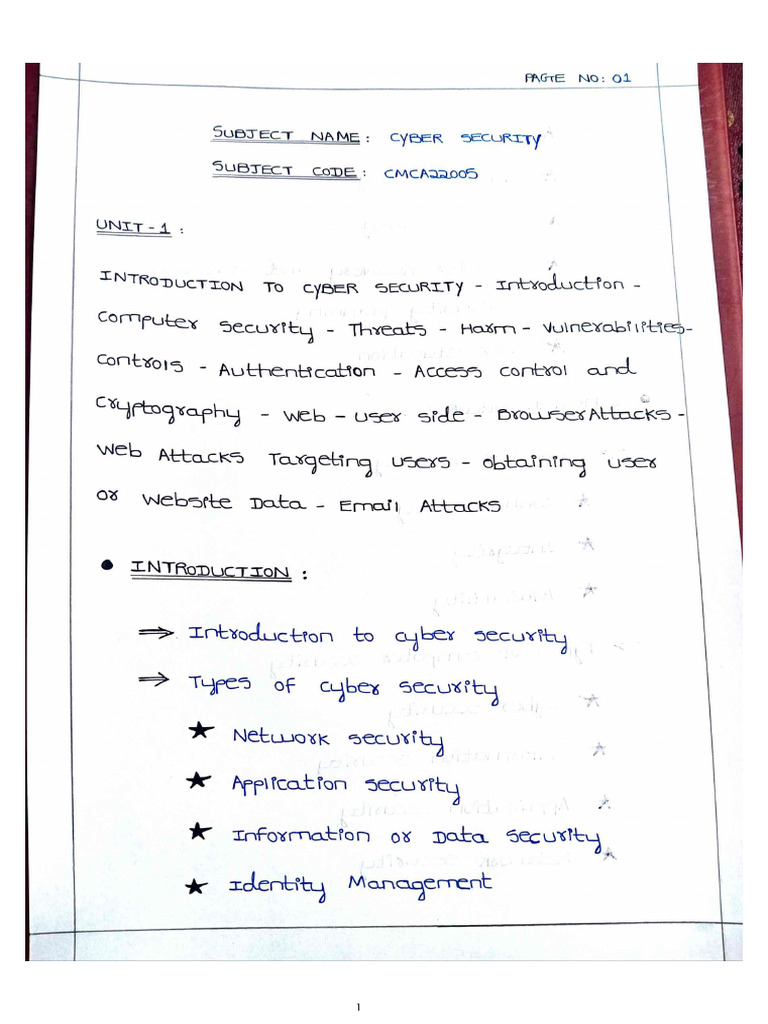 PAGE NO: 01
SUBJECT NAME: CYBER SECURITY
SUBJECT CODE: CMCA22005
UNIT-1:
INTRODUCTION TO CYBER SECURITY - Introduction -
Computer Security - Threats - Harm - Vulnerabilities-
Controls - Authentication - Access Control and
Cryptography - Web - user side - Browser Attacks -
Web Attacks Targeting users - obtaining user
or website Data - Email Attacks
• INTRODUCTION:
⇒ Introduction to cyber security
⇒ Types of cyber security
★ Network security
★ Application security
★ Information or Data Security
★ Identity Management
1